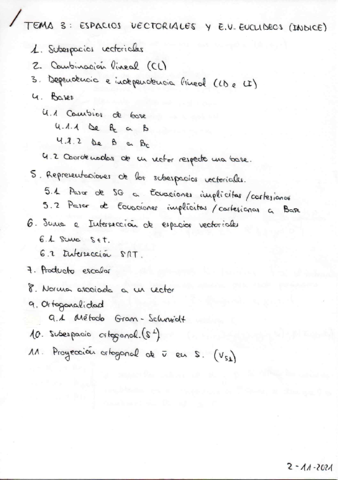 TEMA 3: ESPACIOS VECTORIALES Y E.V. EUCLIDEOS (INDICE)
1. Subespacios vectoriales
2. Combinación lineal (CL)
3. Dependencia e independencia lineal (LD e LI)
4. Bases
4.1 Cambios de base
4.1.1 De Bc a B
4.2.2 De B a Bc
4.2 Coordenadas de un vector respecto una base.
5. Representaciones de los subespacios vectoriales.
5.1 Pasar de SG a Ecuaciones implícitas/cartesianas
5.2 Pasar de Ecuaciones implícitas/cartesianas a Base
6. Suma e Intersección de espacios vectoriales
6.1 Suma S+T.
6.2 Intersección S∩T.
7. Producto escalar
8. Norma asociada a un vector
9. Ortogonalidad
9.1 Método Gram-Schmidt
10. Subespacio ortogonal. (S⊥)
11. Proyección ortogonal de v̄ en S.
2-11-2021